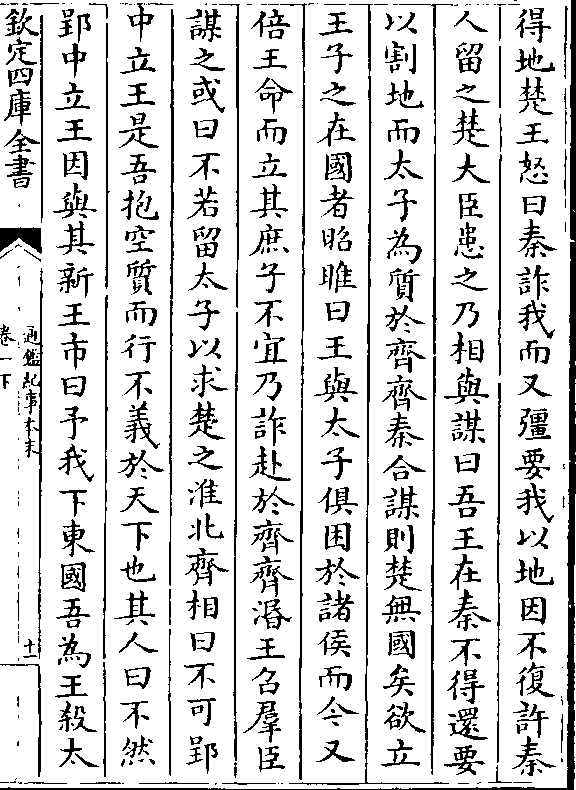 得地楚王怒曰秦詐我而又彊要我以地因不復許秦
人留之楚大臣患之乃相與謀曰吾王在秦不得還要
以割地而太子為質於齊齊秦合謀則楚無國矣欲立
王子之在國者昭睢曰王與太子俱困於諸侯而今又
倍王命而立其庶子不宜乃詐赴於齊齊湣王召羣臣
謀之或曰不若留太子以求楚之淮北齊相曰不可郢
中立王是吾抱空質而行不義於天下也其人曰不然
郢中立王因與其新王市曰予我下東國吾為王殺太
欽定四庫全書
通鑑紀事本末
卷一下
十二